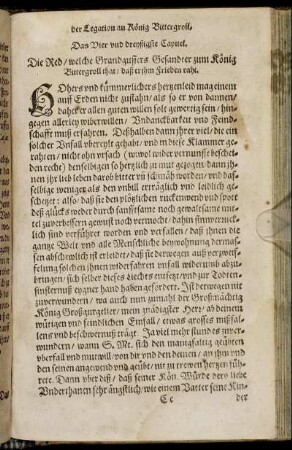 der Legation an König Bittergroll.
Das Vier vnd dreyssigste Capitel.
Die Red / welche Grandgusiers Gesandter zum König
Bittergroll that / daß er jhm Frieden raht.
HOhers vnd kümmerlichers hertzenleid mag einem
auff Erden nicht zustahn / als so er von dannen /
daher er allen guten willen solt gewertig sein / hin-
gegen allerley widerwillen / Vndanckbarkeit vnd Feind-
schafft muß erfahren. Deßhalben dann jhrer viel / die ein
solcher Vnfall vbereylt gehabt / vnd in diese Klammer ge-
rahten / nicht ohn vrsach ( wiewol wider vernunfft besche-
den recht) denselbigen so hertzlich zu mut gezogen dann jh-
nen jhr lieb leben darob bitter vñ schmäh worden / vnd daß-
selbige weniger als den vnbill erträglich vnd leidlich ge-
schetzet: also / daß sie den plötzlichen ruckenwend vnd spor-
deß glücks weder durch sanfftsame noch gewaltsame mit-
tel zuverbessern gewust noch vermocht / dahin sinnverruck-
lich sind verführet worden vnd verfallen / daß jhnen die
gantze Welt vnd alle Menschliche beywohnung dermas-
sen abschewlich ist erleidet / daß sie derwegen auß verzweif-
felung solchen jhnen widerfahren vnfall widerumb abzu-
bringen / sich selber dieses Liechtes entsetzt / vnd zur Todten-
finsternuß eygner hand haben gefördert. Ist derwegen nit
zuverwundern / wa auch nun zumahl der Großmächtig
König Großgurgelier / mein gnädigster Herr / ab deinem
wütigen vnd feindlichen Einfall / etwas grosses mißfal-
lens vnd beschwernuß trägt. Ja viel mehr stund es zuver-
wundern / wann S. Mt. sich den mangfaltig geübten
vberfall vnd mutwill / von dir vnd den deinen / an jhm vnd
den seinen angewend vnd geübt / nit zu trewem hertzen füh-
rete. Dann vber diß / daß seiner Kön. Würde dero liebe
Vnderthanen sehr ängstlich / wie einem Vatter seine Kin-
Cc der